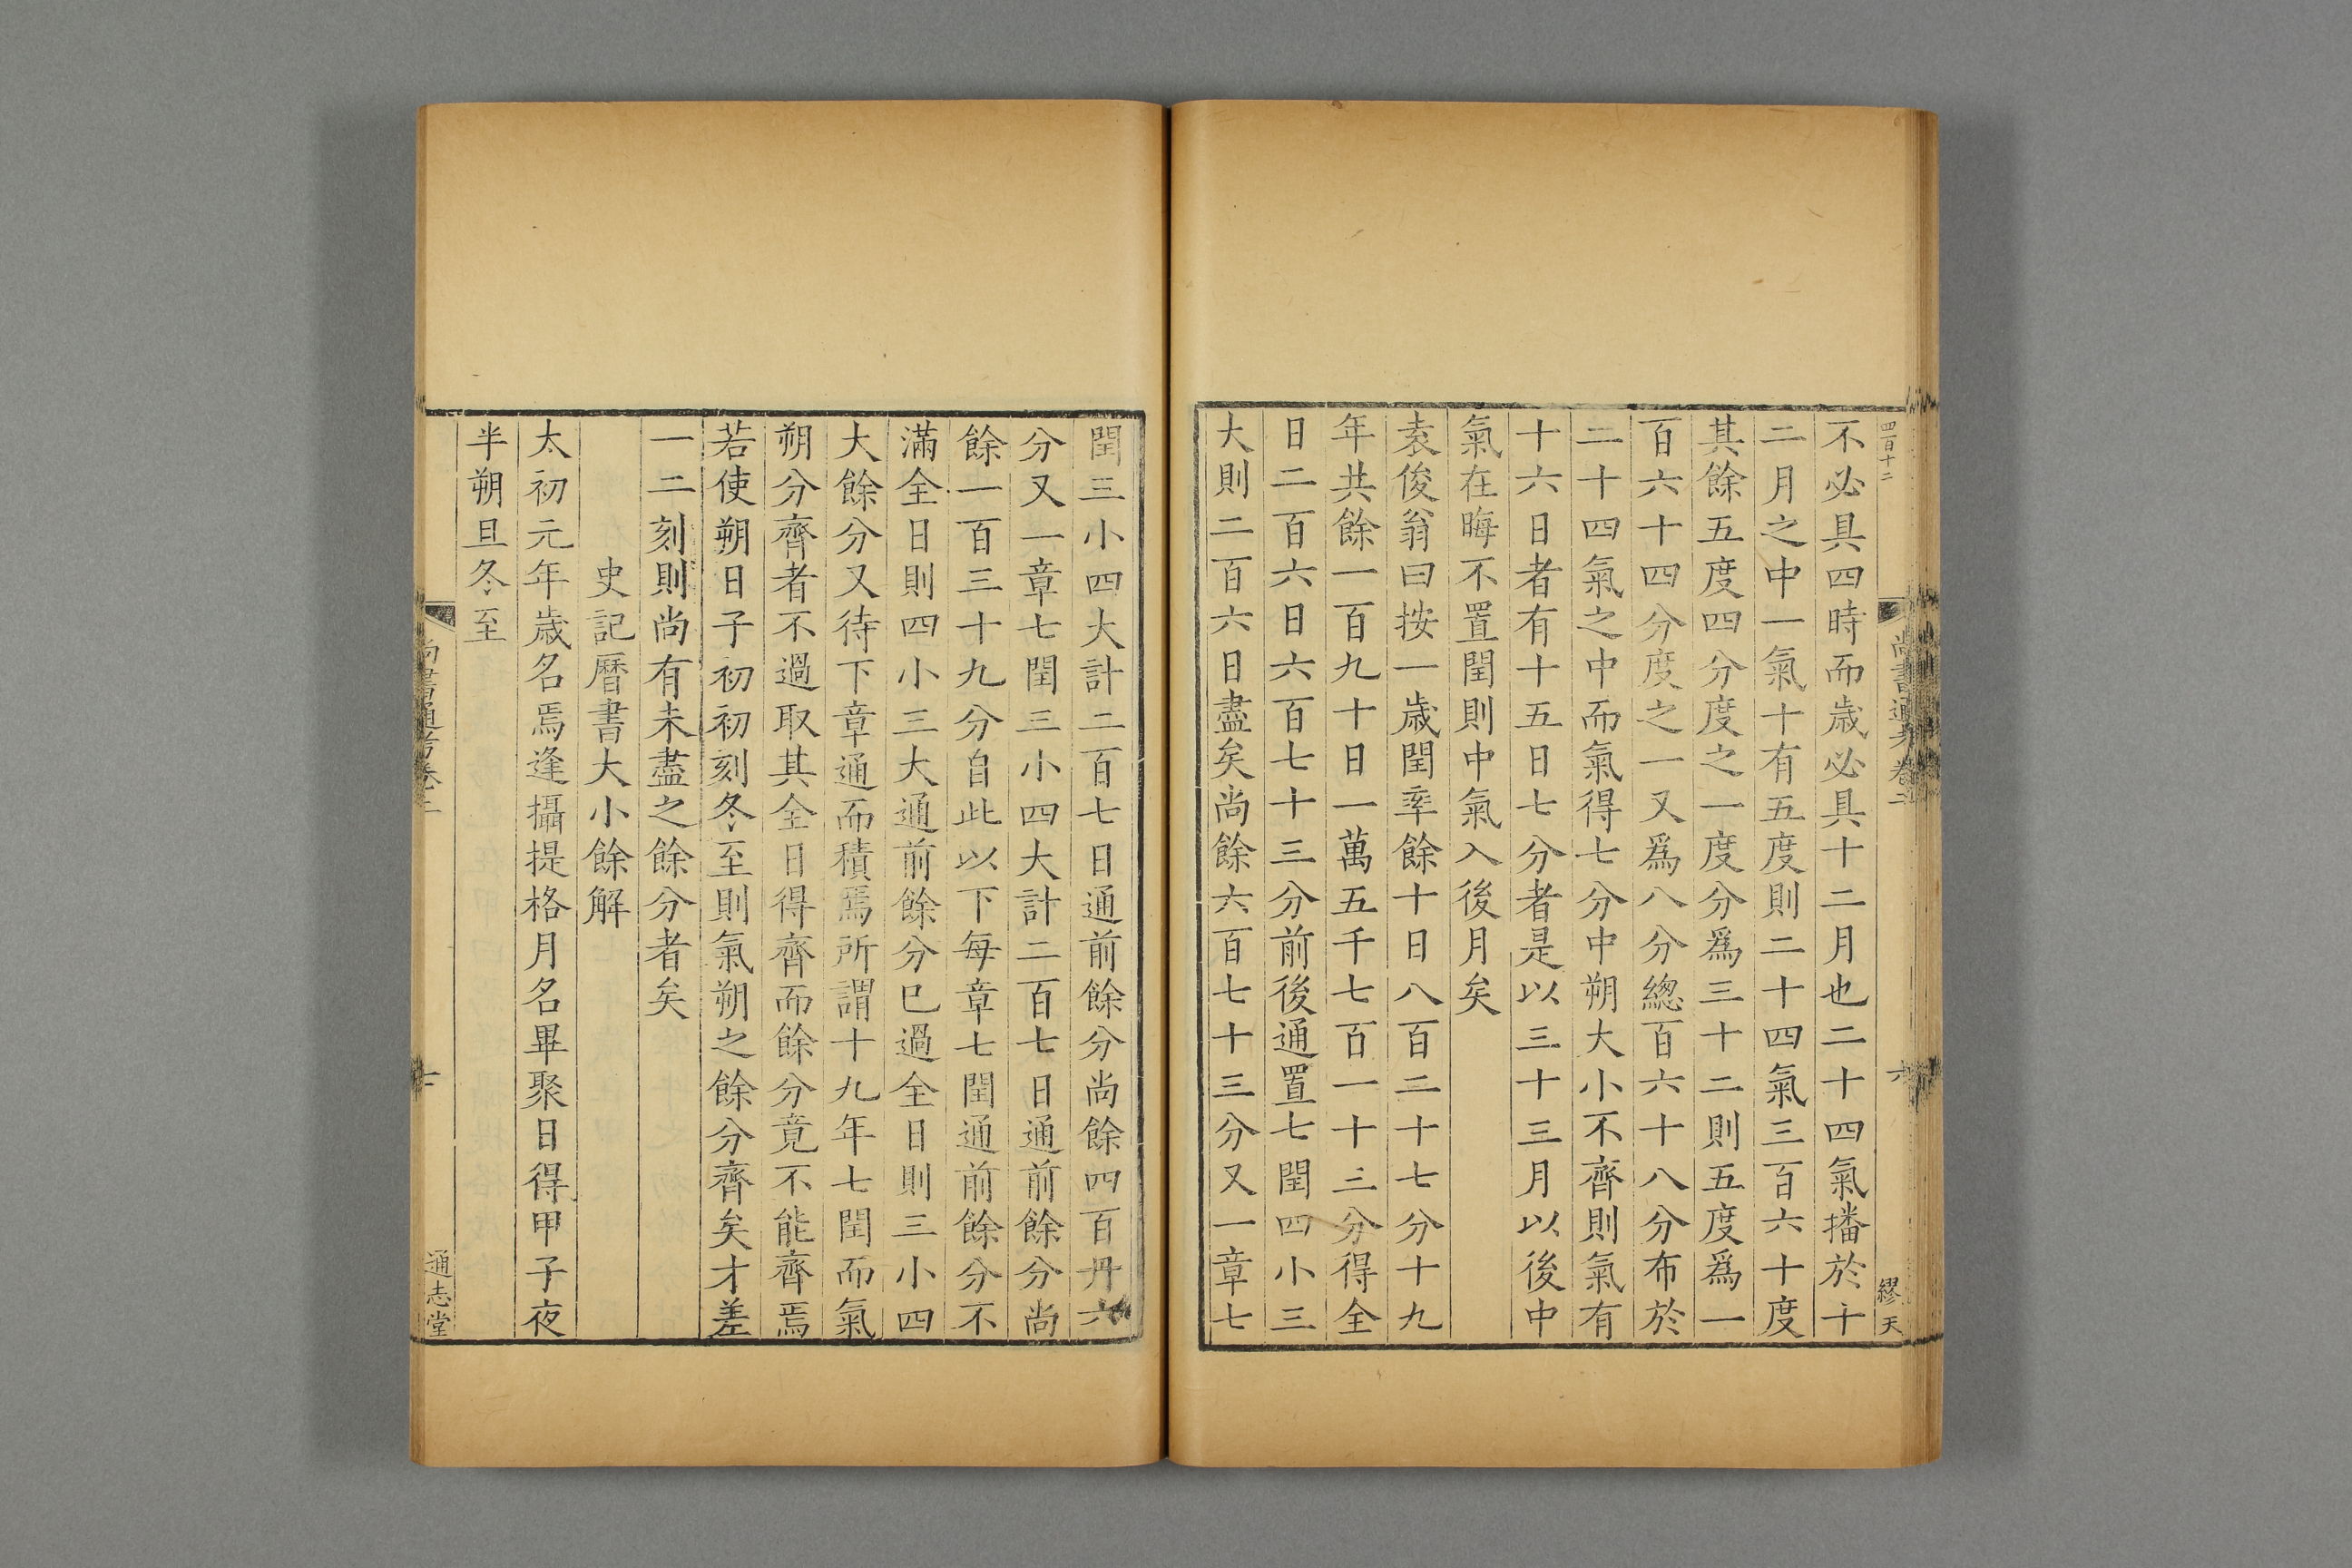 四百十二
尚書通考卷二
六
繆天
不必具四時而歲必具十二月也二十四氣播於十
二月之中一氣十有五度則二十四氣三百六十度
其餘五度四分度之一度分爲三十二則五度爲一
百六十四分度之一又爲八分總百六十八分布於
二十四氣之中而氣得七分中朔大小不齊則氣有
十六日者有十五日七分者是以三十三月以後中
氣在晦不置閏則中氣入後月矣
袁俊翁曰按一歲閏率餘十日八百二十七分十九
年共餘一百九十日一萬五千七百一十三分得全
日二百六日六百七十三分前後通置七閏四小三
大則二百六日盡矣尚餘六百七十三分又一章七
閏三小四大計二百七日通前餘分尚餘四百丹六
分又一章七閏三小四大計二百七日通前餘分尚
餘一百三十九分自此以下每章七閏通前餘分不
滿全日則四小三大通前餘分已過全日則三小四
大餘分又待下章通而積焉所謂十九年七閏而氣
朔分齊者不過取其全日得齊而餘分竟不能齊焉
若使朔日子初初刻冬至則氣朔之餘分齊矣才差
一二刻則尚有未盡之餘分者矣
史記曆書大小餘解
太初元年歲名焉逢攝提格月名畢聚日得甲子夜
半朔旦冬至
尚書通考卷二
七
通志堂